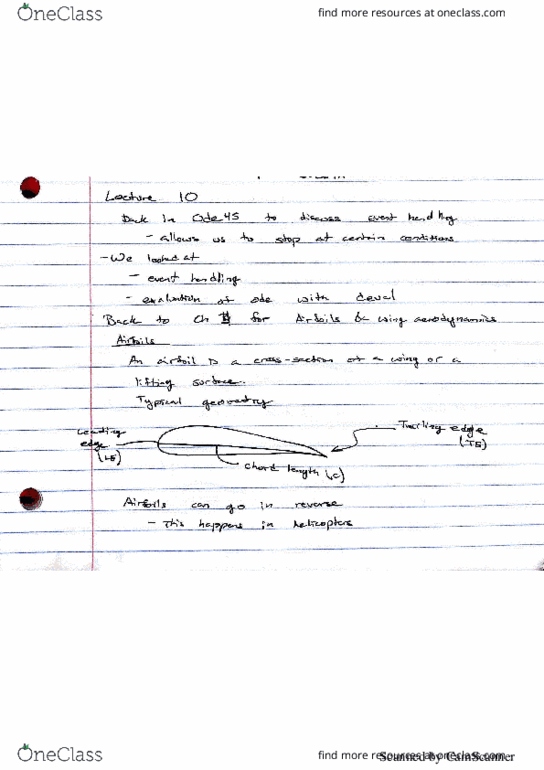 OneClass
find more resources at oneclass.com
Lecture 10
Back in Ode45 to discuss event handling
- allows us to stop at certain conditions
- We looked at
- event handling
- evaluation of ode with deval
Back to Ch for Airfoils & wing aerodynamics
Airfoils
An airfoil is a cross-section of a wing or a
lifting surface.
Typical geometry
Leading edge (LE)
Trailing edge (TE)
chord length (c)
Airfoils can go in reverse
- This happens in helicopters
OneClass
find more resources at oneclass.com
Scanned by CamScanner